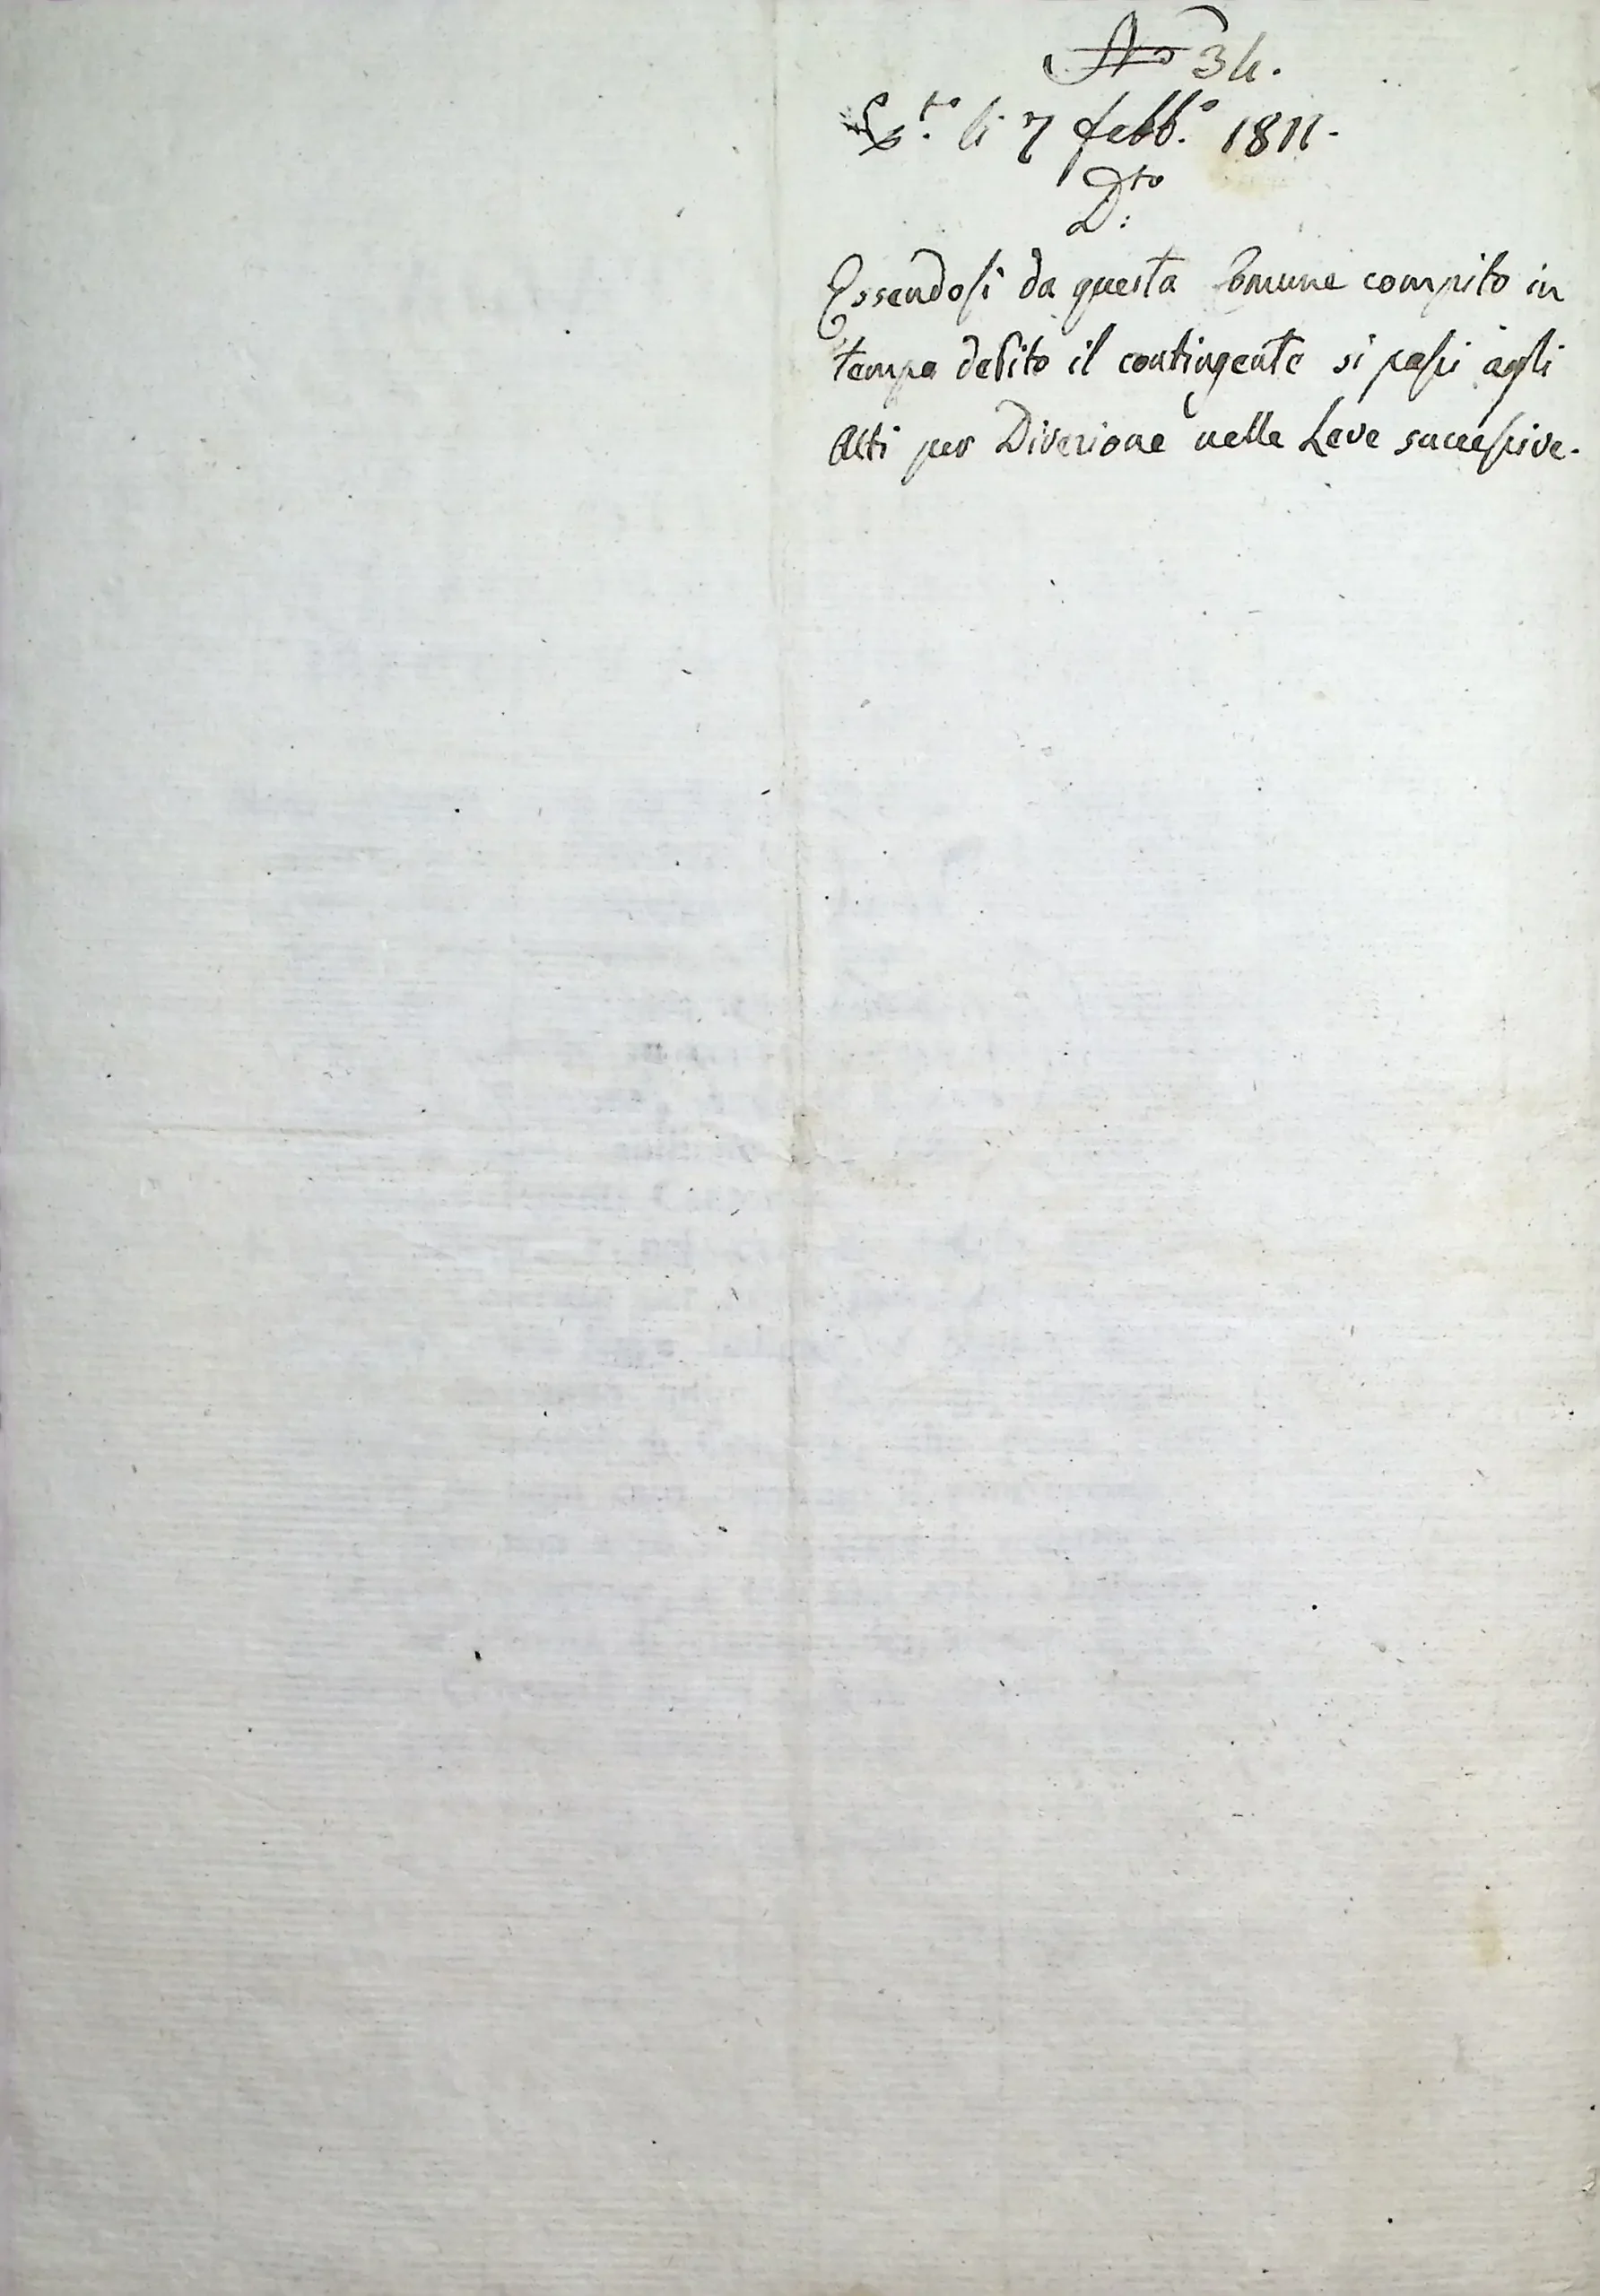 No 34.
li 7 febb.o 1811.
D.to
Essendosi da questa Comune compito in
tempo debito il contingente si passi agli
Atti per Direzione nelle Leve successive.